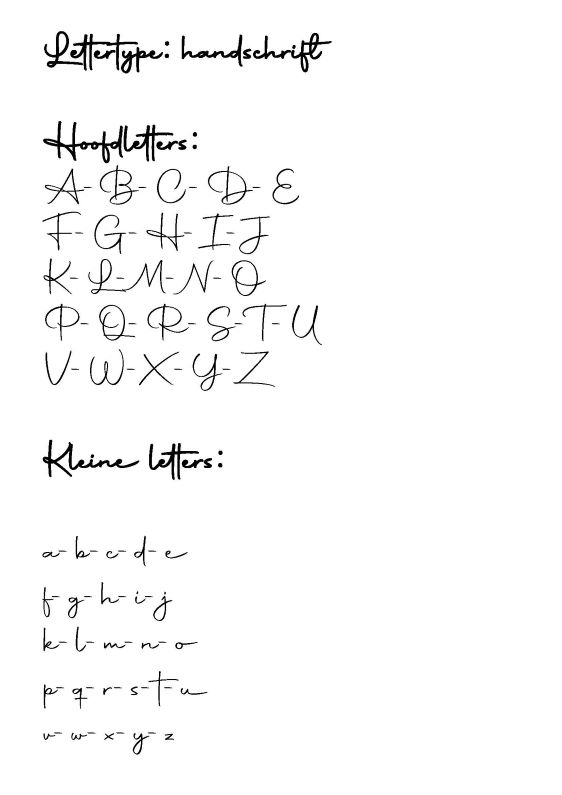 Lettertype: handschrift
Hoofdletters:
A- B- C- D- E
F- G- H- I- J
K- L- M- N- O
P- Q- R- S- T- U
V- W- X- Y- Z
Kleine letters:
a- b- c- d- e
f- g- h- i- j
k- l- m- n- o
p- q- r- s- t- u
v- w- x- y- z